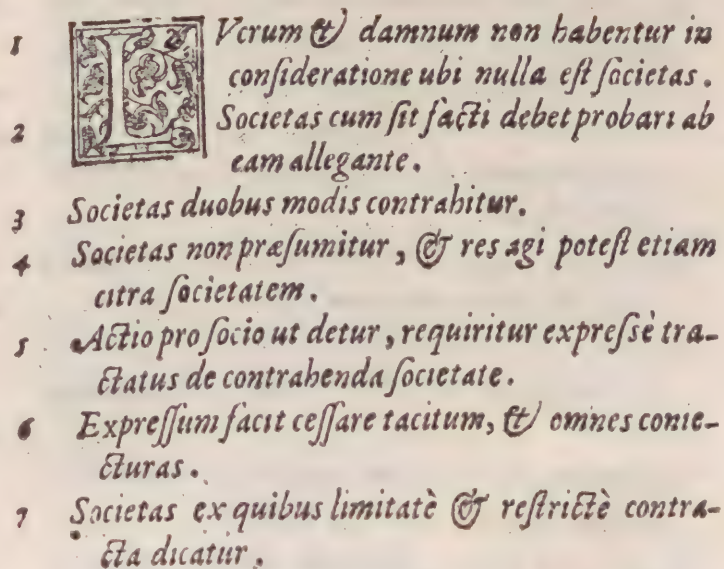 1 LVcrum & damnum non habentur in
conſideratione ubi nulla eſt ſocietas.
2 Societas cum ſit facti debet probari ab
eam allegante.
3 Societas duobus modis contrahitur.
4 Societas non præſumitur, & res agi poteſt etiam
citra ſocietatem.
5 Actio pro ſocio ut detur, requiritur expreſsè tra-
ctatus de contrahenda ſocietate.
6 Expreſſum facit ceſſare tacitum, & omnes conie-
cturas.
7 Societas ex quibus limitatè & reſtrictè contra-
cta dicatur.